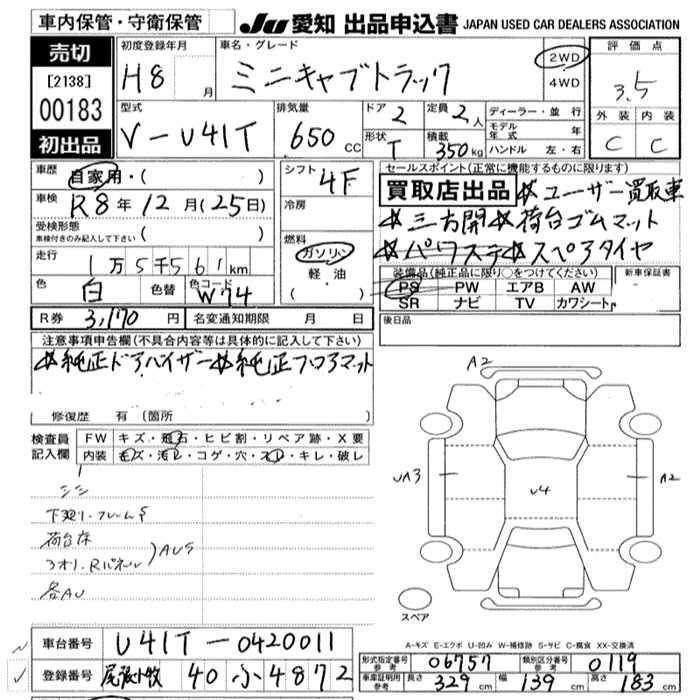 車内保管・守衛保管
JU 愛知 出品申込書 JAPAN USED CAR DEALERS ASSOCIATION
売切
[2138]
00183
初出品
初度登録年月 H8 月
車名・グレード ミニキャブトラック
2WD
4WD
評価点
3.5
外装 内装
C C
型式 V-U41T
排気量 650 CC
ドア 2
形状 T
定員 2 人
積載 350 kg
ディーラー・並行
モデル年式 年
ハンドル 左・右
車歴 自家用・( )
車検 R8年 12月(25日)
受検形態
車検付きのみ記入して下さい ( )
走行 1万5千561km
色 白 色替 色コード W74
シフト 4F
冷房
燃料
ガソリン
軽油
( )
セールスポイント(正常に機能するものに限ります)
買取店出品 ユーザー買取車
三方開 荷台ゴムマット
パワステ スペアタイヤ
装備品(純正品に限り○をつけてください) 新車保証書
PS PW エアB AW
SR ナビ TV カワシート
R券 3,170円 名変通知期限 月 日
後日品
注意事項申告欄(不具合内容等は具体的に記入して下さい)
純正ドアバイザー 純正フロアマット
修復歴 有(箇所
検査員記入欄
FW キズ・飛石・ヒビ割・リペア跡・X要
内装 キズ・汚レ・コゲ・穴・スレ・キレ・破レ
下廻リ・フレームS
荷台床
3オリ・Rパネル
AUS
各AU
A2
UA3
U4
A2
スペア
A-キズ E-エクボ U-凹み W-補修跡 S-サビ C-腐食 XX-交換済
車台番号 U41T-0420011
登録番号 尾張小牧 40 ふ 4872
形式指定番号参考 06757 類別区分番号参考 0119
車庫証明用参考 長さ 329 cm 幅 139 cm 高さ 183 cm